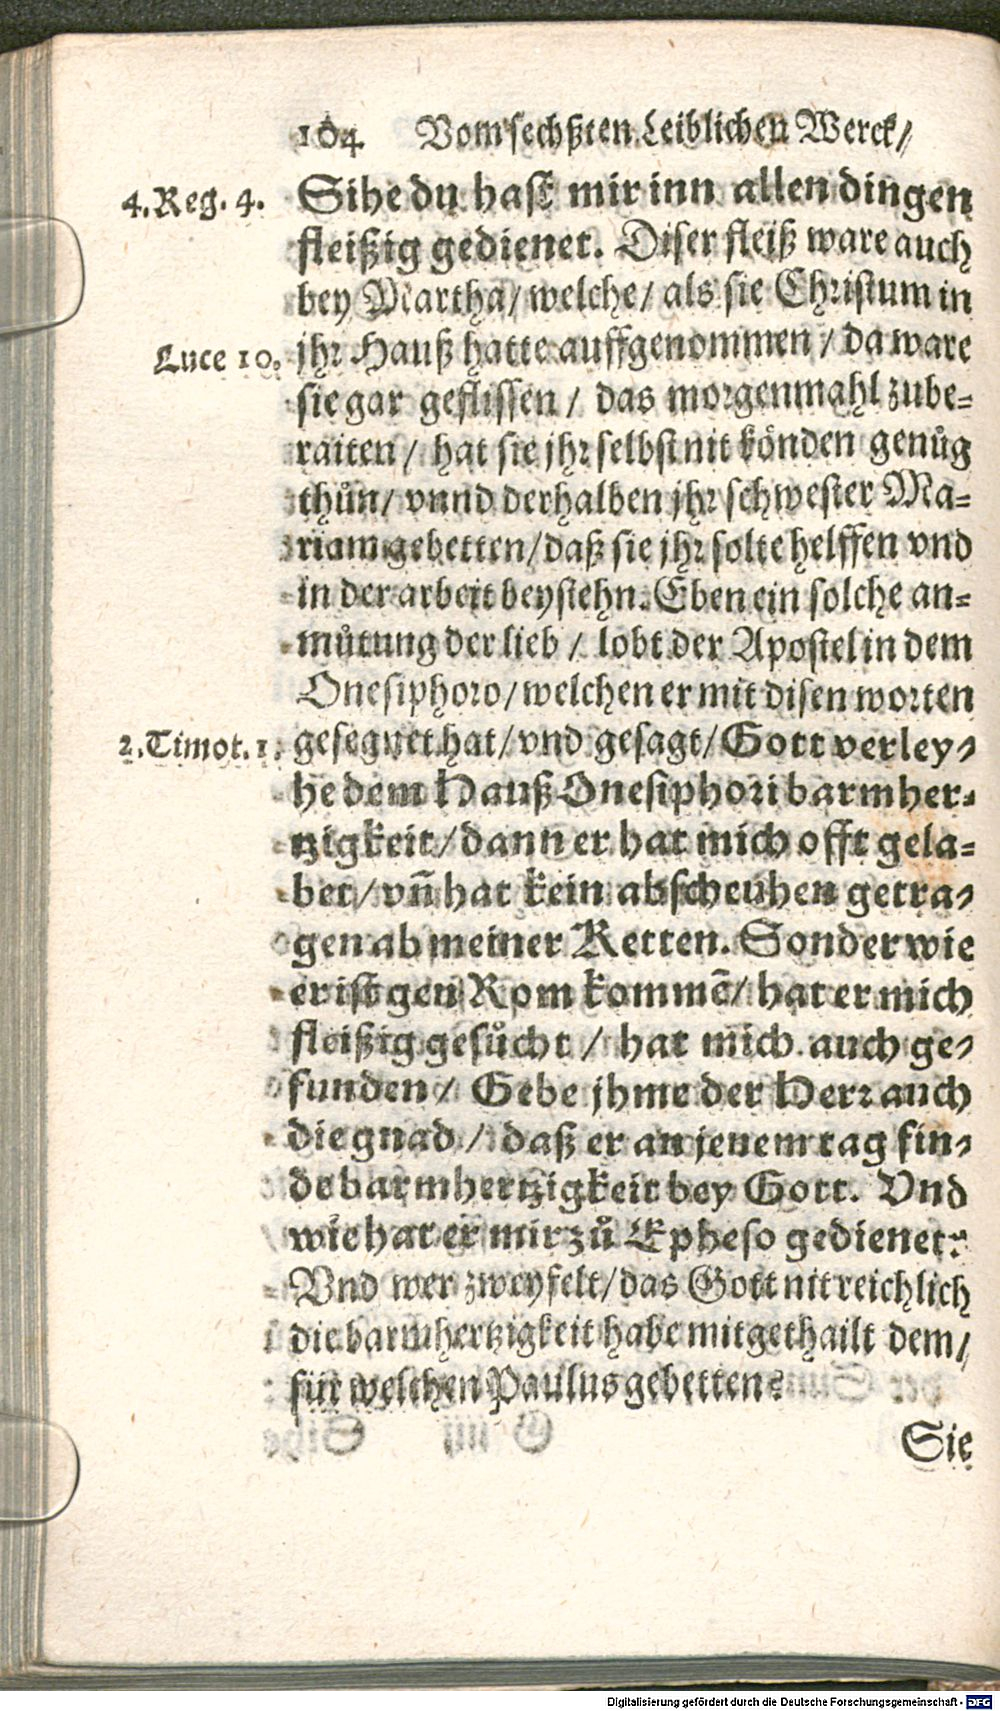 104 Vom sechßten Leiblichen Werck/
4.Reg. 4. Sihe du hast mir inn allen dingen
fleißig gedienet. Diser fleiß ware auch
bey Martha/ welche/ als sie Christum in
Luce 10. jhr Hauß hatte auffgenommen / da ware
sie gar geflissen / das morgenmahl zube=
raiten / hat sie jhr selbst nit könden genůg
thůn/ vnnd derhalben jhr schwester Ma=
riam gebetten/daß sie jhr solte helffen vnd
in der arbeit beystehn. Eben ein solche an=
můtung der lieb / lobt der Apostel in dem
Onesiphoro/welchen er mit disen worten
2.Timot. 1. gesegnet hat/vnd gesagt/Gott verley=
he dem Hauß Onesiphori barmher=
tzigkeit/dann er hat mich offt gela=
bet/vñ hat kein abscheuhen getra=
gen ab meiner Ketten. Sonder wie
er ist gen Rom kommẽ/ hat er mich
fleißig gesůcht / hat mich auch ge=
funden / Gebe jhme der Herr auch
die gnad / daß er an jenem tag fin=
de barmhertzigkeit bey Gott. Vnd
wie hat er mir zů Epheso gedienet?
Vnd wer zweyfelt/das Gott nit reichlich
die barmhertzigkeit habe mitgethailt dem/
für welchen Paulus gebetten?
Sie
Digitalisierung gefördert durch die Deutsche Forschungsgemeinschaft - DFG